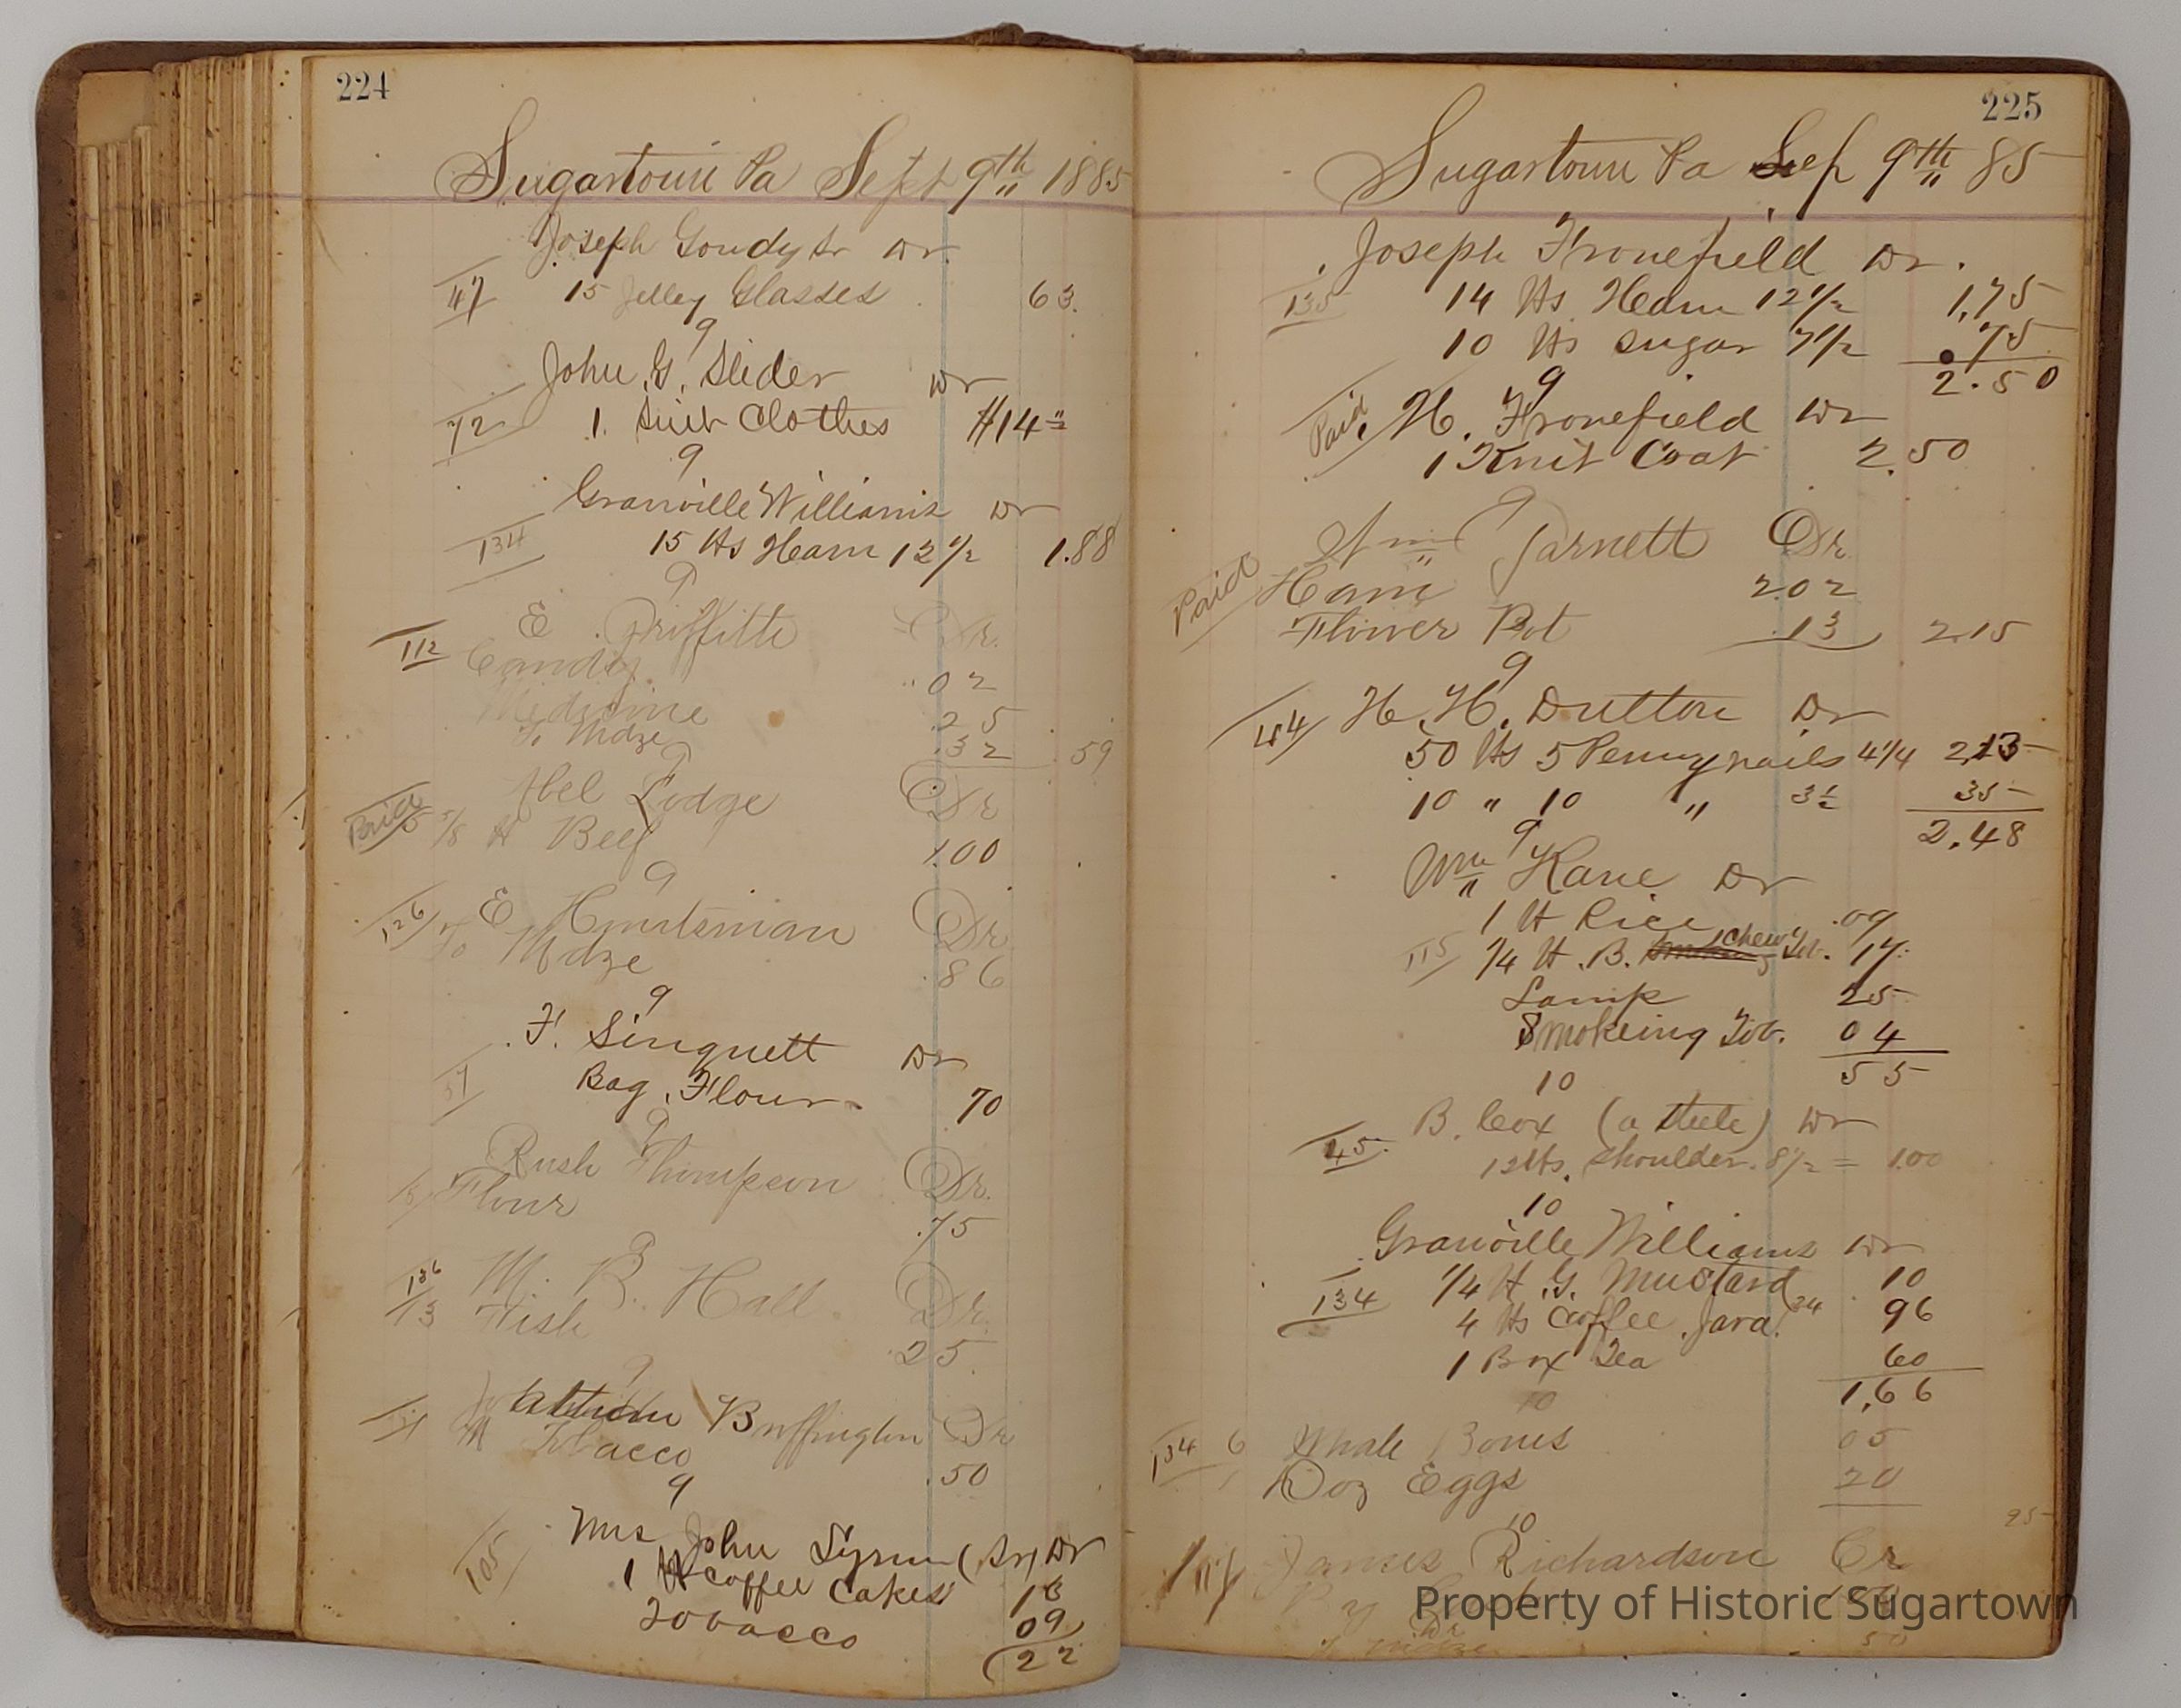 224
Sugartown Pa Sept 9th 1885
Joseph Goudy Sr Dr.
47 15 Jelley Glasses 63.
9
John G. Slider Dr
72 1. Suit Clothes $14
9
Granville Williams Dr
134 15 lbs Ham 12 1/2 1.88
9
E Griffith Dr.
112 Candy .02
Medicine .25
To Mdze .32 .59
9
Abel Lodge Dr
Paid 5/8 lb Beef 1.00
9
E Huntsman Dr
126 To Mdze .86
9
F. Singuett Dr
Bag. Flour 70
9
Rush Thompson Dr.
Flour .75
9
M. B. Hall Dr.
136
13 Fish .25
9
Buffington Dr
Tobacco .50
9
Mrs John Lynn (Sr) Dr
105 1 lb coffee Cakes 13
Tobacco 09
22
225
Sugartown Pa Sep 9th 85
Joseph Fronefield Dr.
135 14 lbs Ham 12 1/2 1.75
10 lbs sugar 7 1/2 .75
2.50
9
Paid. H. Fronefield Dr
1 Knit Coat 2.50
9
Wm Garnett Dr
Paid Ham 2.02
Flower Pot .13 2.15
9
H. H. Dutton Dr
44 50 lbs 5 Penny nails 4 1/4 2.13
10 " 10 " 3 1/2 35
2.48
9
Wm Kane Dr
1 lb Rice .09
115 1/4 lb. B. Smoking chew Tob. 17.
Lamp 25
Smokeing Tob. 04
55
10
B. Cox (a Steele) Dr
45. 12 lbs. Shoulder. 8 1/2 = 1.00
10
Granville Williams Dr
134 1/4 lb. G. Mustard 10
4 lbs Coffee Java. 24 96
1 Box Tea 60
1.66
10
134 6 Whale Bones 05
Doz Eggs 20
25
10
James Richardson Cr
Dr
50
Property of Historic Sugartown